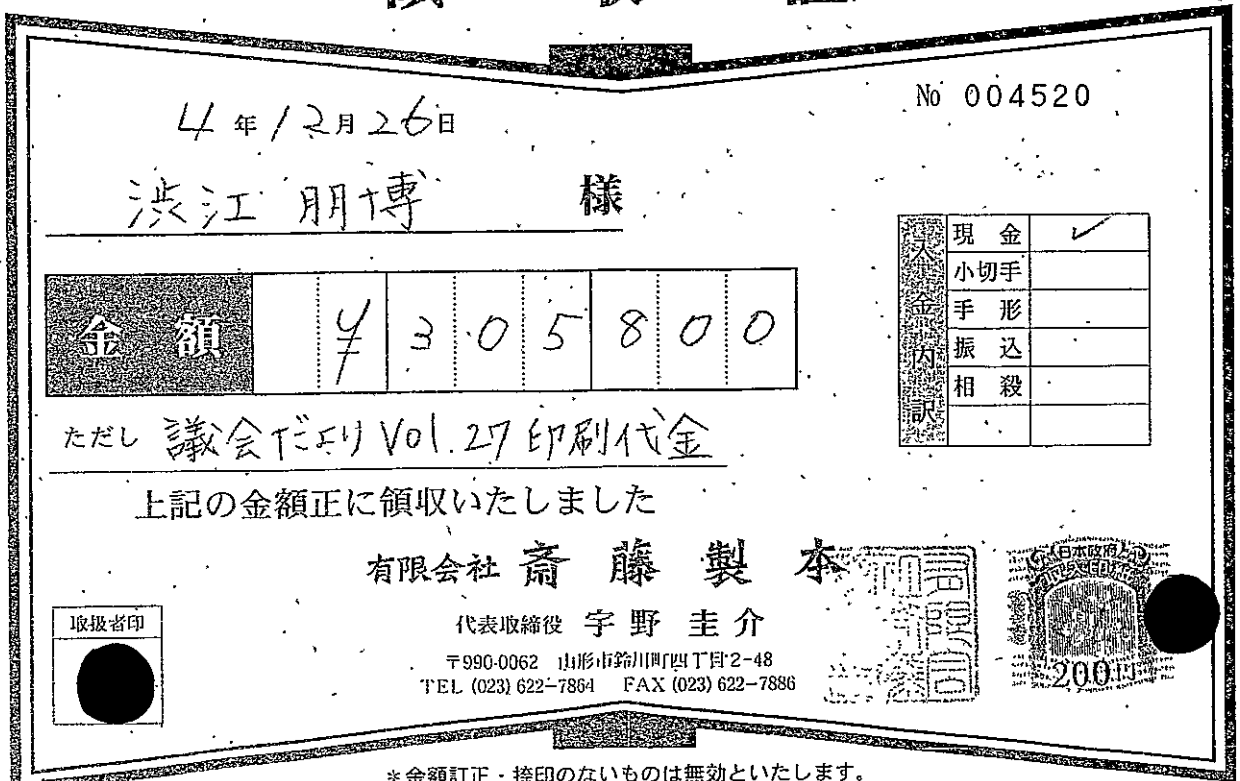 No 004520
4年12月26日
渋江朋博 様
入金内訳
現金 ✓
小切手
手形
振込
相殺
金額 ¥305800
ただし 議会だよりVol.27印刷代金
上記の金額正に領収いたしました
有限会社 斎藤製本
代表取締役 宇野圭介
〒990-0062 山形市鈴川町四丁目2-48
TEL (023) 622-7864 FAX (023) 622-7886
取扱者印
日本政府
収入印紙
200円
*金額訂正・捺印のないものは無効といたします。